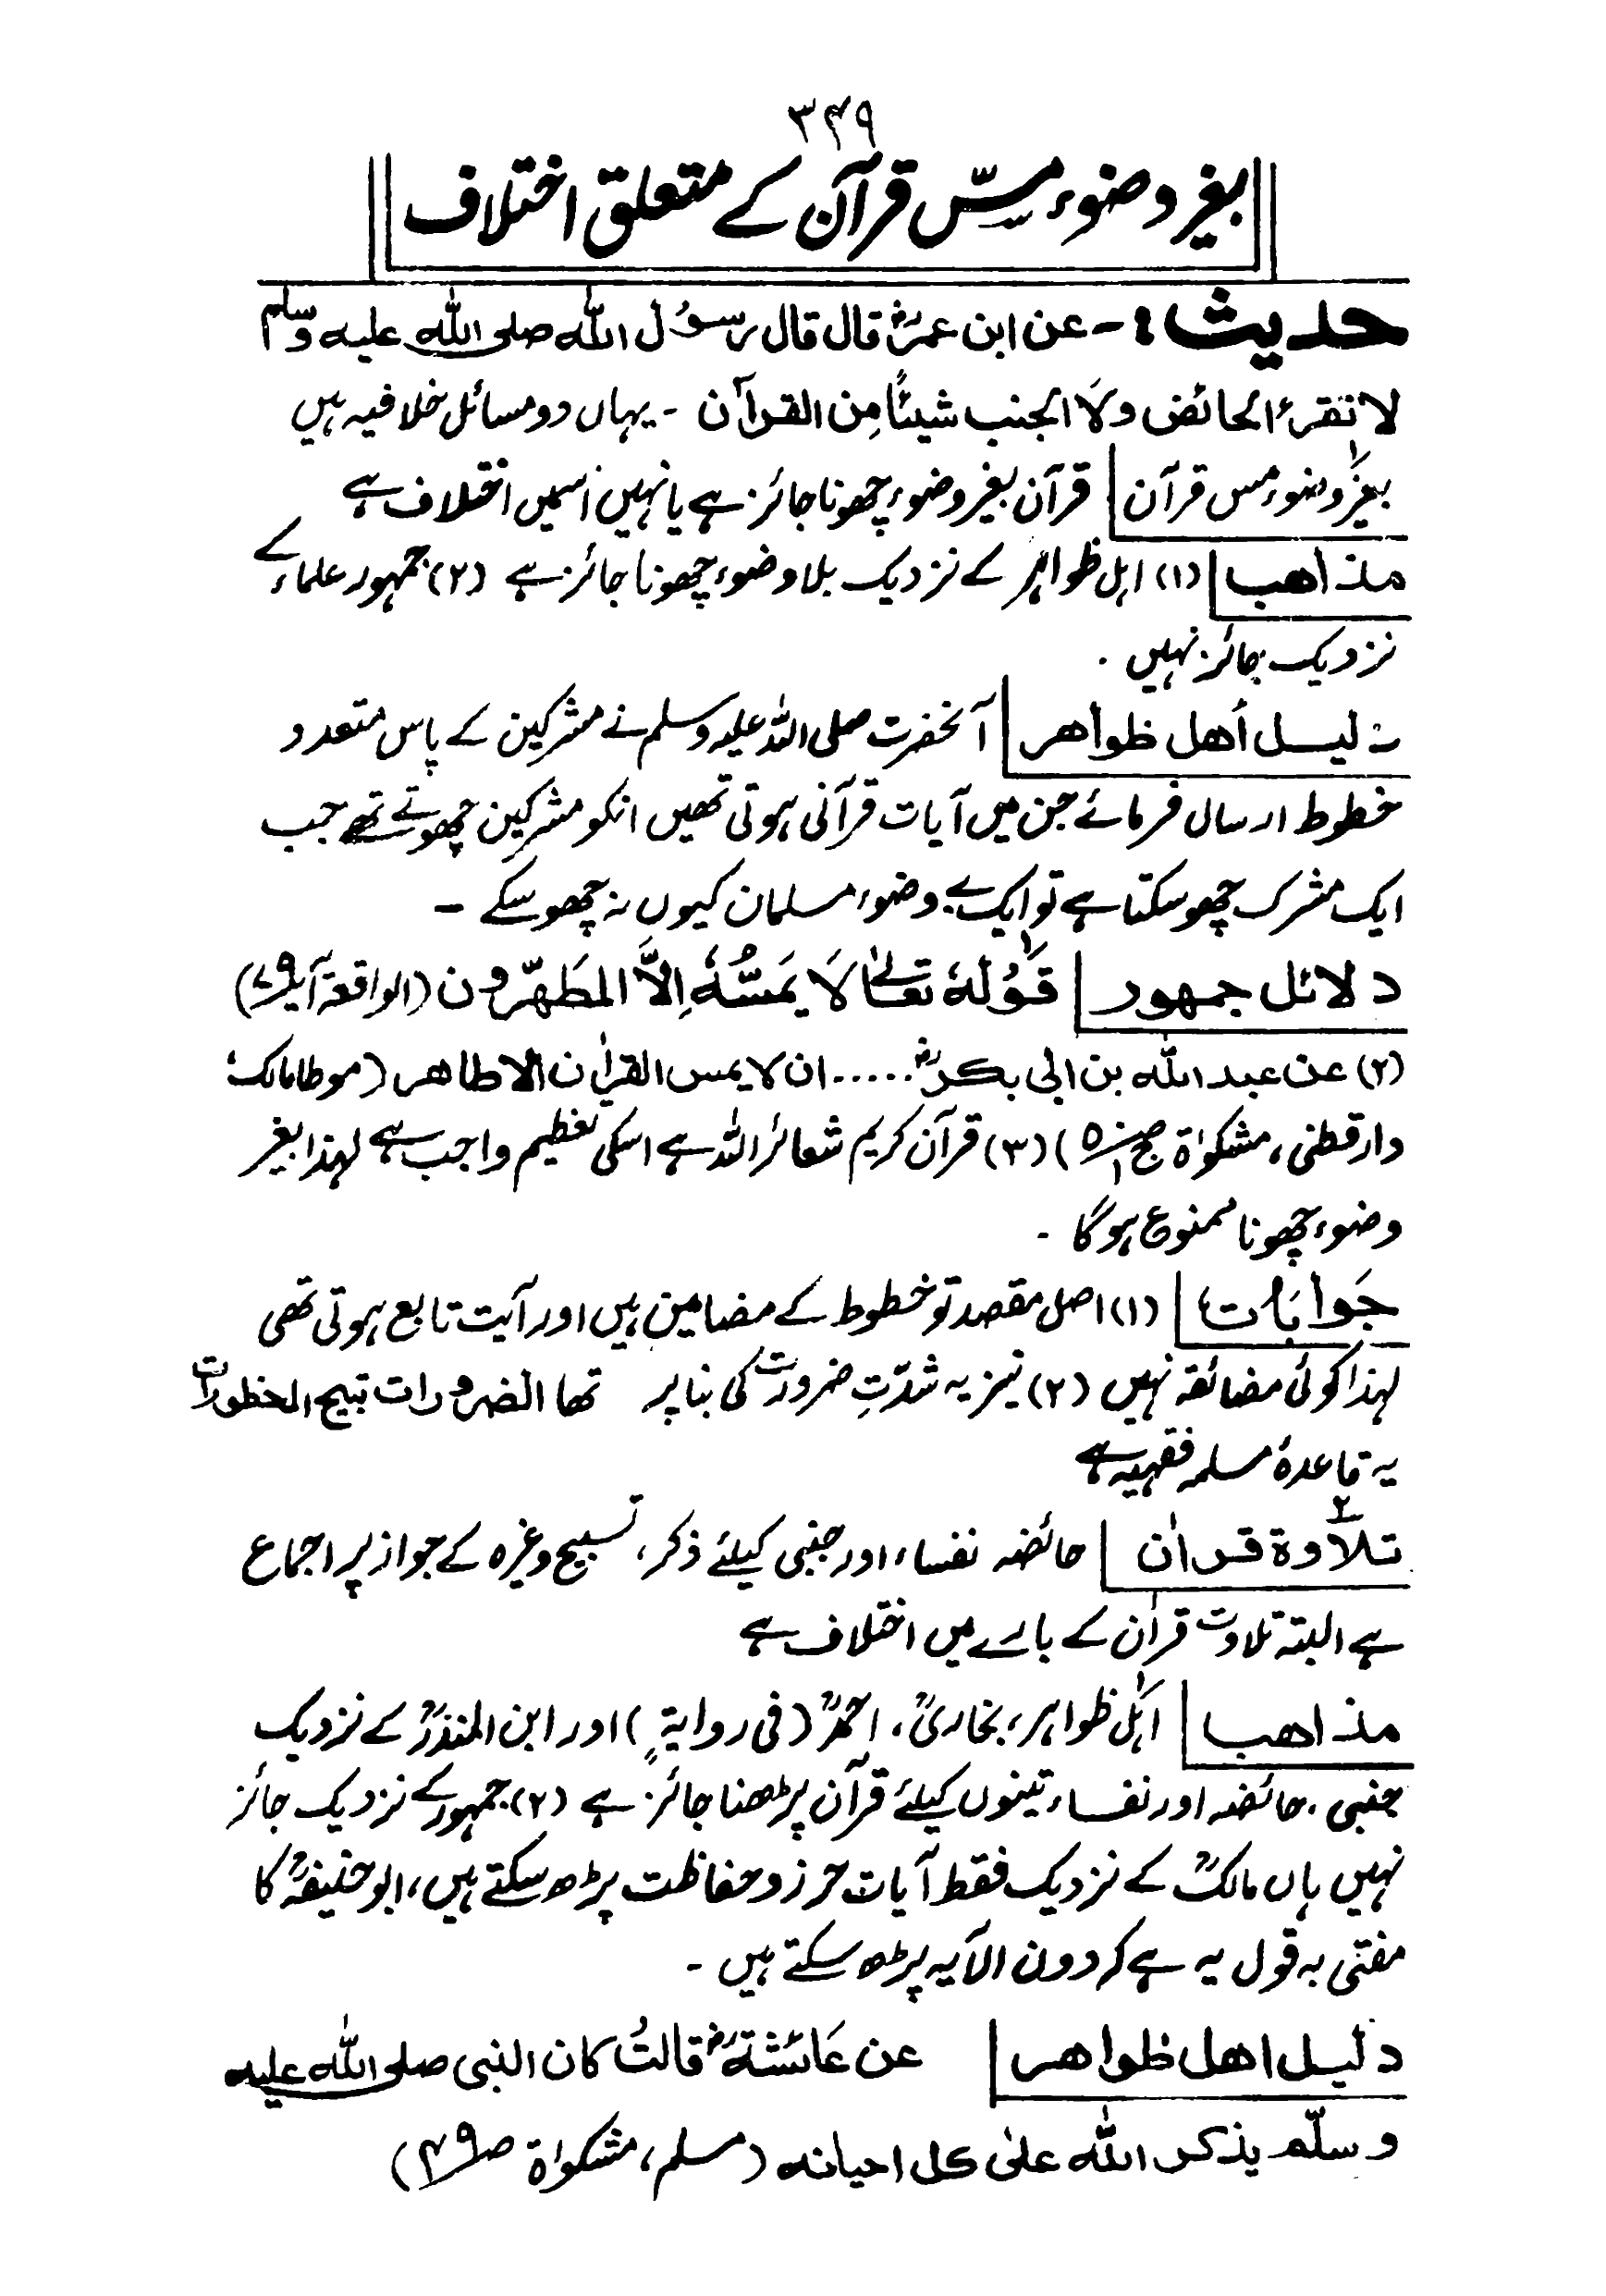 ۳۴۹
بغیر وضوء مسّ قرآن کے متعلق اختلاف
حدیث :- عن ابن عمرؓ قال قال رسولُ اللہ صلی اللہ علیہ وسلم
لا تقرء الحائض ولَا الجنب شیئًا مِن القرآن ۔ یہاں دو مسائل خلافیہ ہیں
بغیر وضوء مس قرآن | قرآن بغیر وضوء چھونا جائز ہے یا نہیں اسمیں اختلاف ہے
مذاھب | (۱) اہل ظواہر کے نزدیک بلا وضوء چھونا جائز ہے (۲) جمہور علماء کے
نزدیک جائز نہیں ۔
دلیل أھل ظواھر | آنحضرت صلی اللہ علیہ وسلم نے مشرکین کے پاس متعدد
خطوط ارسال فرمائے جن میں آیات قرآنی ہوتی تھیں انکو مشرکین چھوتے تھے جب
ایک مشرک چھو سکتا ہے تو ایک بے وضوء مسلمان کیوں نہ چھو سکے ۔
دلائل جمہور | قَوُلهٗ تعَالىٰ لَا یَمَسُّہٗ اِلَّا المطَھّرون (الواقعۃ آیۃ ۷۹)
(۲) عن عبد اللہ بن ابی بکرؓ ..... ان لا یمس القراٰن الا طاھر (موطا مالک،
دارقطنی، مشکوٰۃ ج۱ ص۵۰) (۳) قرآن کریم شعائر اللہ ہے اسکی تعظیم واجب ہے لہذا بغیر
وضوء چھونا ممنوع ہوگا ۔
جَوابَات | (۱) اصل مقصد تو خطوط کے مضامین ہیں اور آیت تابع ہوتی تھی
لہذا کوئی مضائقہ نہیں (۲) نیز یہ شدّتِ ضرورت کی بنا پر تھا الضرورات تبیح المحظورات
یہ قاعدۂ مسلمہ فقہیہ ہے
۲ تلاوۃ قراٰن | حائضہ نفساء اور جنبی کیلئے ذکر، تسبیح وغیرہ کے جواز پر اجماع
ہے البتہ تلاوت قراٰن کے بارے میں اختلاف ہے
مذاھب | اہل ظواہر، بخاریؒ، احمدؒ (فی روایۃٍ) اور ابن المنذرؒ کے نزدیک
جنبی، حائضہ اور نفساء تینوں کیلئے قرآن پڑھنا جائز ہے (۲) جمہور کے نزدیک جائز
نہیں ہاں مالکؒ کے نزدیک فقط آیات حرز وحفاظت پڑھ سکتے ہیں، ابوحنیفہؒ کا
مفتی بہ قول یہ ہے کہ دون الآیہ پڑھ سکتے ہیں ۔
دلیل اھل ظواھر | عن عَائشۃؓ قالتُ کان النبی صلی اللہ علیہ
وسلّم یذکر اللہ علیٰ کل احیانہ (مسلم، مشکوٰۃ ص۴۹)